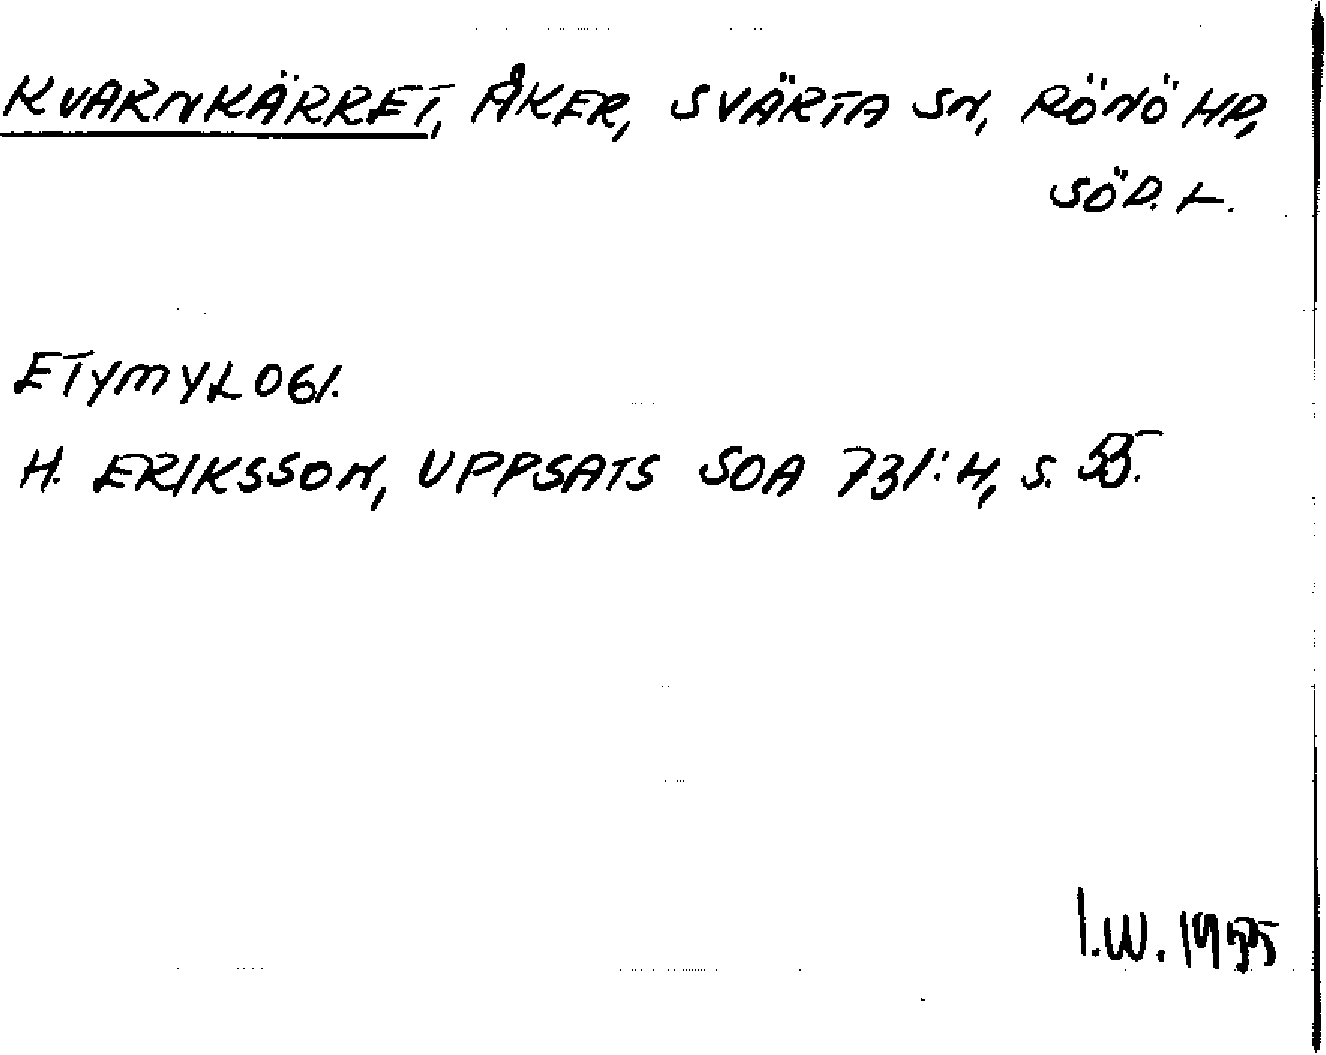 KVARNKÄRRET, ÅKER, SVÄRTA SN, RÖNÖ HD,
SÖD. L.
ETYMYLOGI.
H. ERIKSSON, UPPSATS SOA 731:4, S. 55.
I.W. 1955